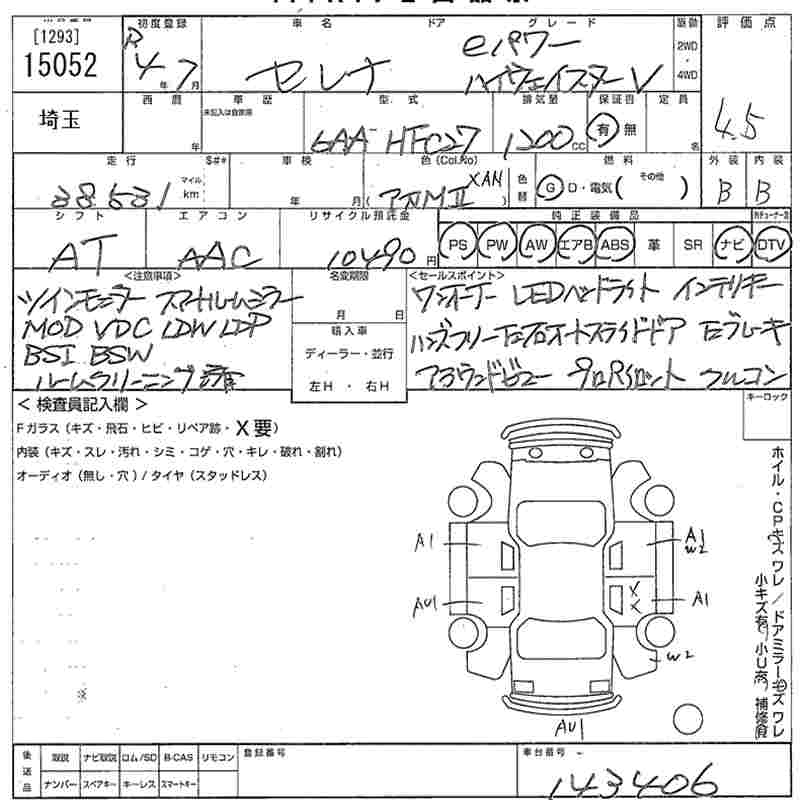 [1293]
15052
初度登録
車名
ドア
グレード
駆動
評価点
R4年7月
セレナ
eパワー
ハイウェイスターV
2WD
4WD
埼玉
西暦
年
車歴
未記入は自家用
型式
6AA-HFC27
排気量
1200cc
保証書
有 無
定員
名
4.5
走行
38531
マイル
km
S##
車検
年 月
色(Col.No)
XAN
色替
燃料
G・D・電気(その他)
外装
B
内装
B
シフト
AT
エアコン
AAC
リサイクル預託金
10490円
純正装備品
PS PW AW エアB ABS 革 SR ナビ DTV
<注意事項>
ツインモニター スマートルームミラー
MOD VDC LDW LDP
BSI BSW
ルームクリーニング済
名変期限
月 日
輸入車
ディーラー・並行
左H ・ 右H
<セールスポイント>
ワンオーナー LEDヘッドライト インテリキー
ハンズフリー左右オートスライドドア Eブレーキ
アラウンドビュー プロパイロット フルコン
< 検査員記入欄 >
Fガラス(キズ・飛石・ヒビ・リペア跡・X要)
内装(キズ・スレ・汚れ・シミ・コゲ・穴・キレ・破れ・割れ)
オーディオ(無し・穴)/タイヤ(スタッドレス)
キーロック
A1
A1
W2
AU1
XX
A1
W2
AU1
ホイル・CPキズ ワレ/ドアミラーキズ ワレ
小キズ有、小U有、補修有
後送品
取説 ナビ取説 ロム/SD B-CAS リモコン
ナンバー スペアキー キーレス スマートキー
登録番号
車台番号
143406